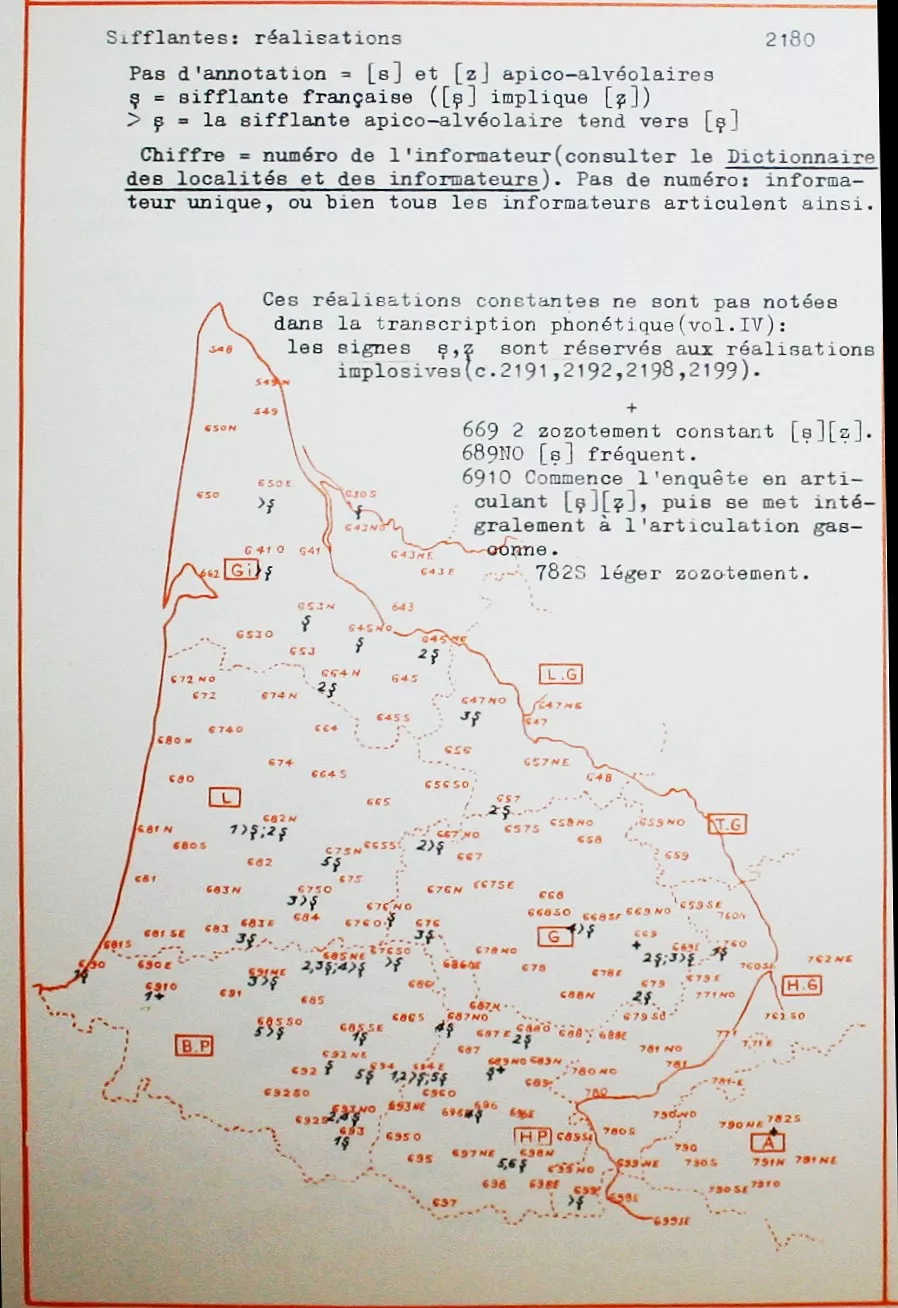 Sifflantes: réalisations 2180
Pas d'annotation = [s] et [z] apico-alvéolaires
ş = sifflante française ([ş] implique [z̧])
> ş = la sifflante apico-alvéolaire tend vers [ş]
Chiffre = numéro de l'informateur(consulter le Dictionnaire
des localités et des informateurs). Pas de numéro: informa-
teur unique, ou bien tous les informateurs articulent ainsi.
Ces réalisations constantes ne sont pas notées
dans la transcription phonétique(vol.IV):
les signes ş,z̧ sont réservés aux réalisations
implosives(c.2191,2192,2198,2199).
+
669 2 zozotement constant [s̱][ẕ].
689NO [s̱] fréquent.
6910 Commence l'enquête en arti-
culant [ş][z̧], puis se met inté-
gralement à l'articulation gas-
conne.
782S léger zozotement.
548
549N
549
650N
650 650E
>ş
630S
ş
643NO
6410 641 643NE
662 Gi >ş 643E
653N 643
ş
6530 645NO 645NE
ş 2ş
653
664N L.G
672NO 2ş 645
672 674N 647NO 647NE
3ş
6740 664 645S 647
680N 656
674 657NE
680 664S 656SO 648
L 665 657
2ş
682N
1>ş;2ş
681N 667NO 657S 658NO 659NO T.G
2>ş
680S 675N 665S 658
5ş
682 667 659
681 675
683N 6750 676N 667SE 668
3>ş
676NO 659SE
683 683E 684 6760 ş 676 668SO 668SE 669NO 760N
3ş 3ş 4>ş
681S 681SE G 669 +
685NE 676SO 678NO 669E 760
2,3ş;4>ş >ş 2ş;3>ş 1ş
690 690E 691NE 686NE 678 678E 760SE 762NE
1ş 3>ş
6910 691 686 688N 679 679E H.G
1+ 2ş
685 771NO
687N 679SO 762SO
685SO 685SE 686S 687NO 687E 6880 688 688E 771
5>ş 1ş 4ş 2ş
B.P 771E
692NE 687 781NO
ş
692 694 694E 689NO 689N 780NO 781
5ş 1,2>ş;5ş ş+
689 781E
692SO 6960 780
693NO 693NE 696 696E 790NO 782S
2,4ş 4ş +
692S 790NE
693 6950 HP 689SE 780S A
1ş
790
695 697NE 698N 699NE 790S 791N 791NE
5,6ş
699NO
698 698E 699 699E 790SE 7910
>ş
697
699SE